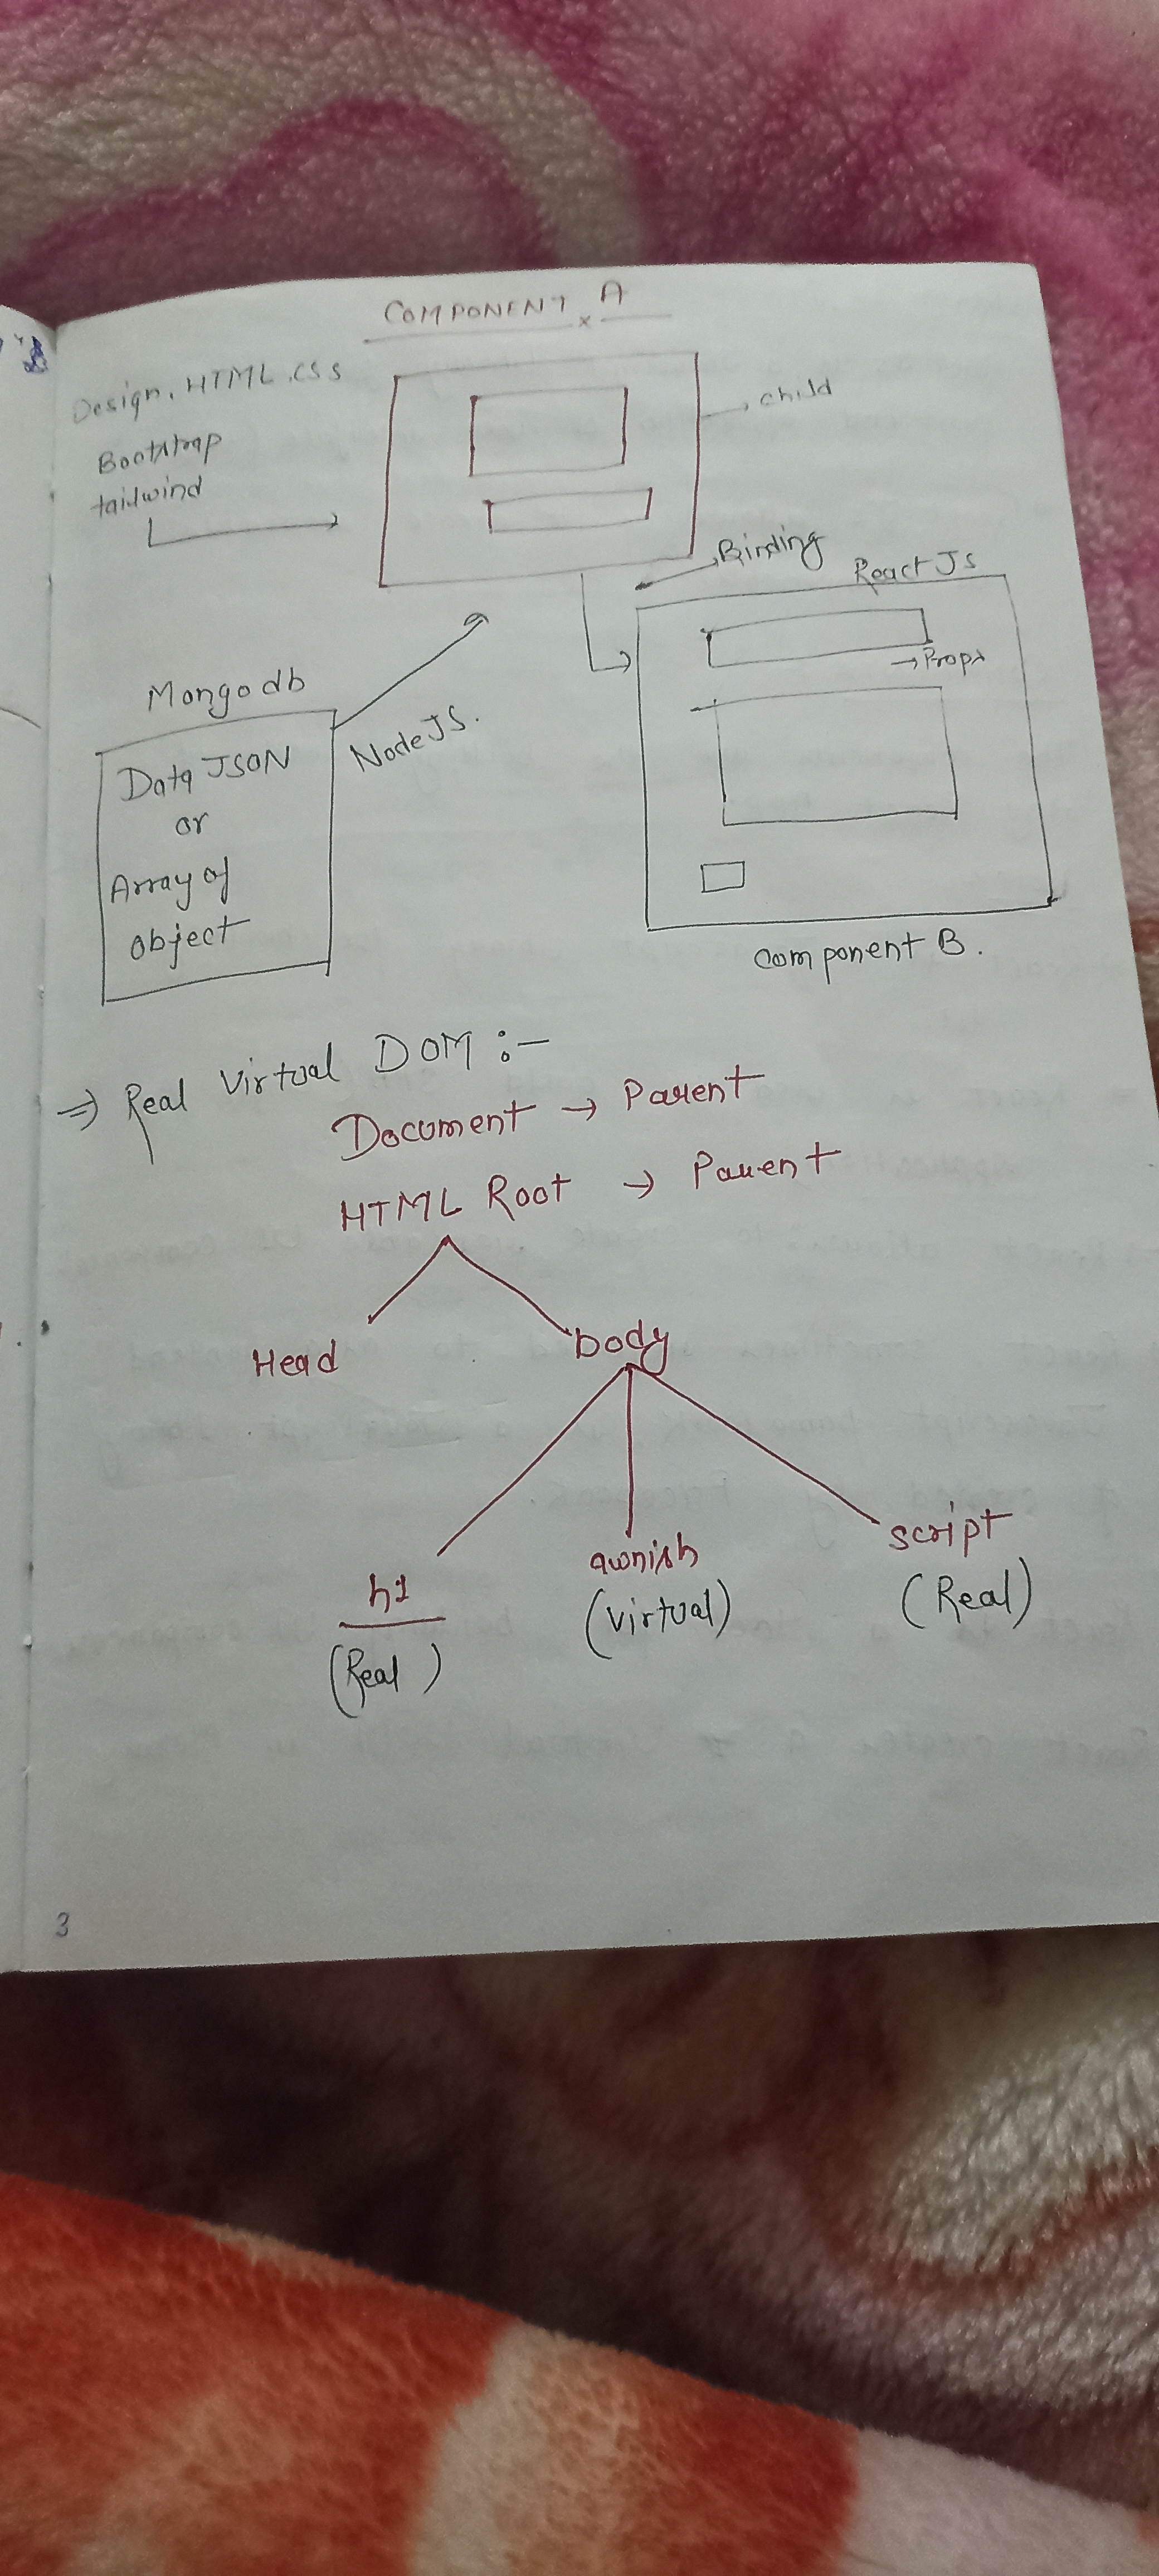 COMPONENT A
Design, HTML, CSS
Bootstrap
tailwind
child
Binding
React JS
Props
Mongodb
Node JS.
Data JSON
or
Array of
object
component B.
⇒ Real Virtual DOM :-
Document → Parent
HTML Root → Parent
Head
body
h1
(Real)
awnish
(virtual)
script
(Real)
3